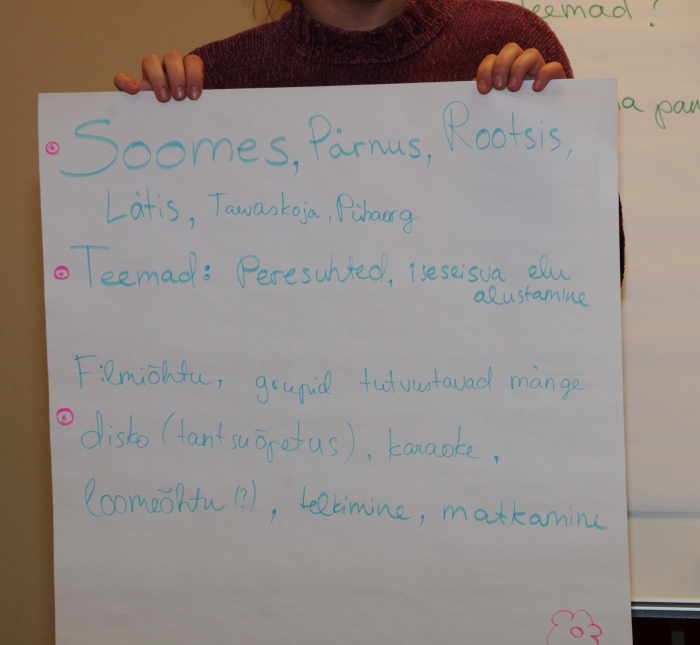 Soomes, Pärnus, Rootsis,
Lätis, Tawaskoja, Pühaorg
Teemad: Peresuhted, iseseisva elu
alustamine
Filmiõhtu, grupid tutvustavad mänge
disko (tantsuõpetus), karaoke,
loomeõhtu (?), telkimine, matkamine
teemad?